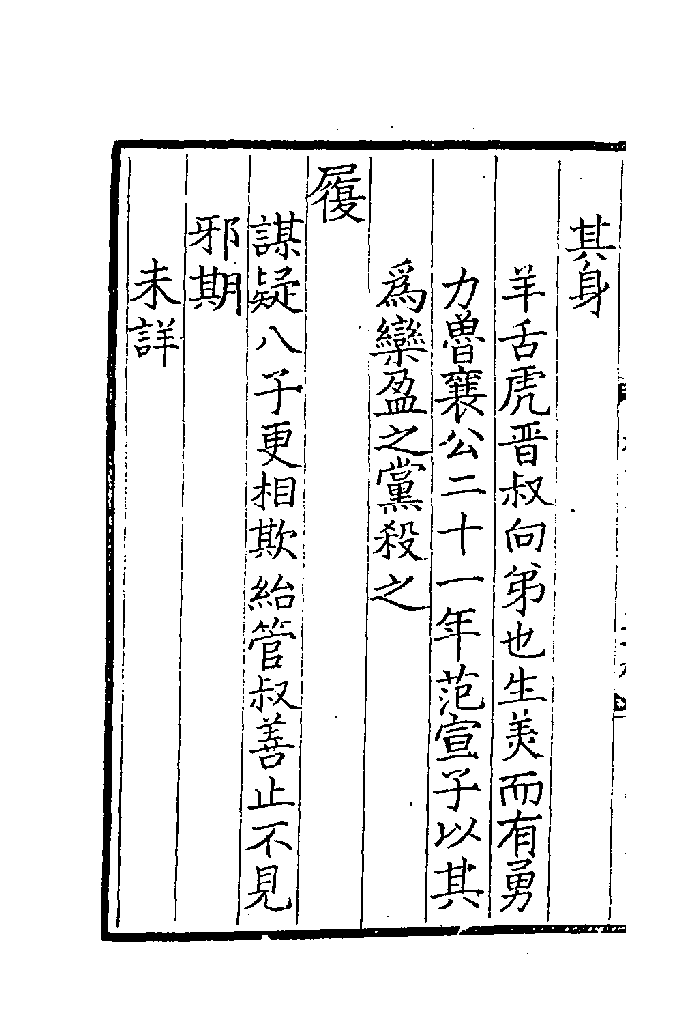 其身
羊舌虎晋叔向弟也生羙而有勇
力魯襄公二十一年范宣子以其
為欒盈之黨殺之
履
謀疑八子更相欺紿管叔善止不見
邪期
未詳